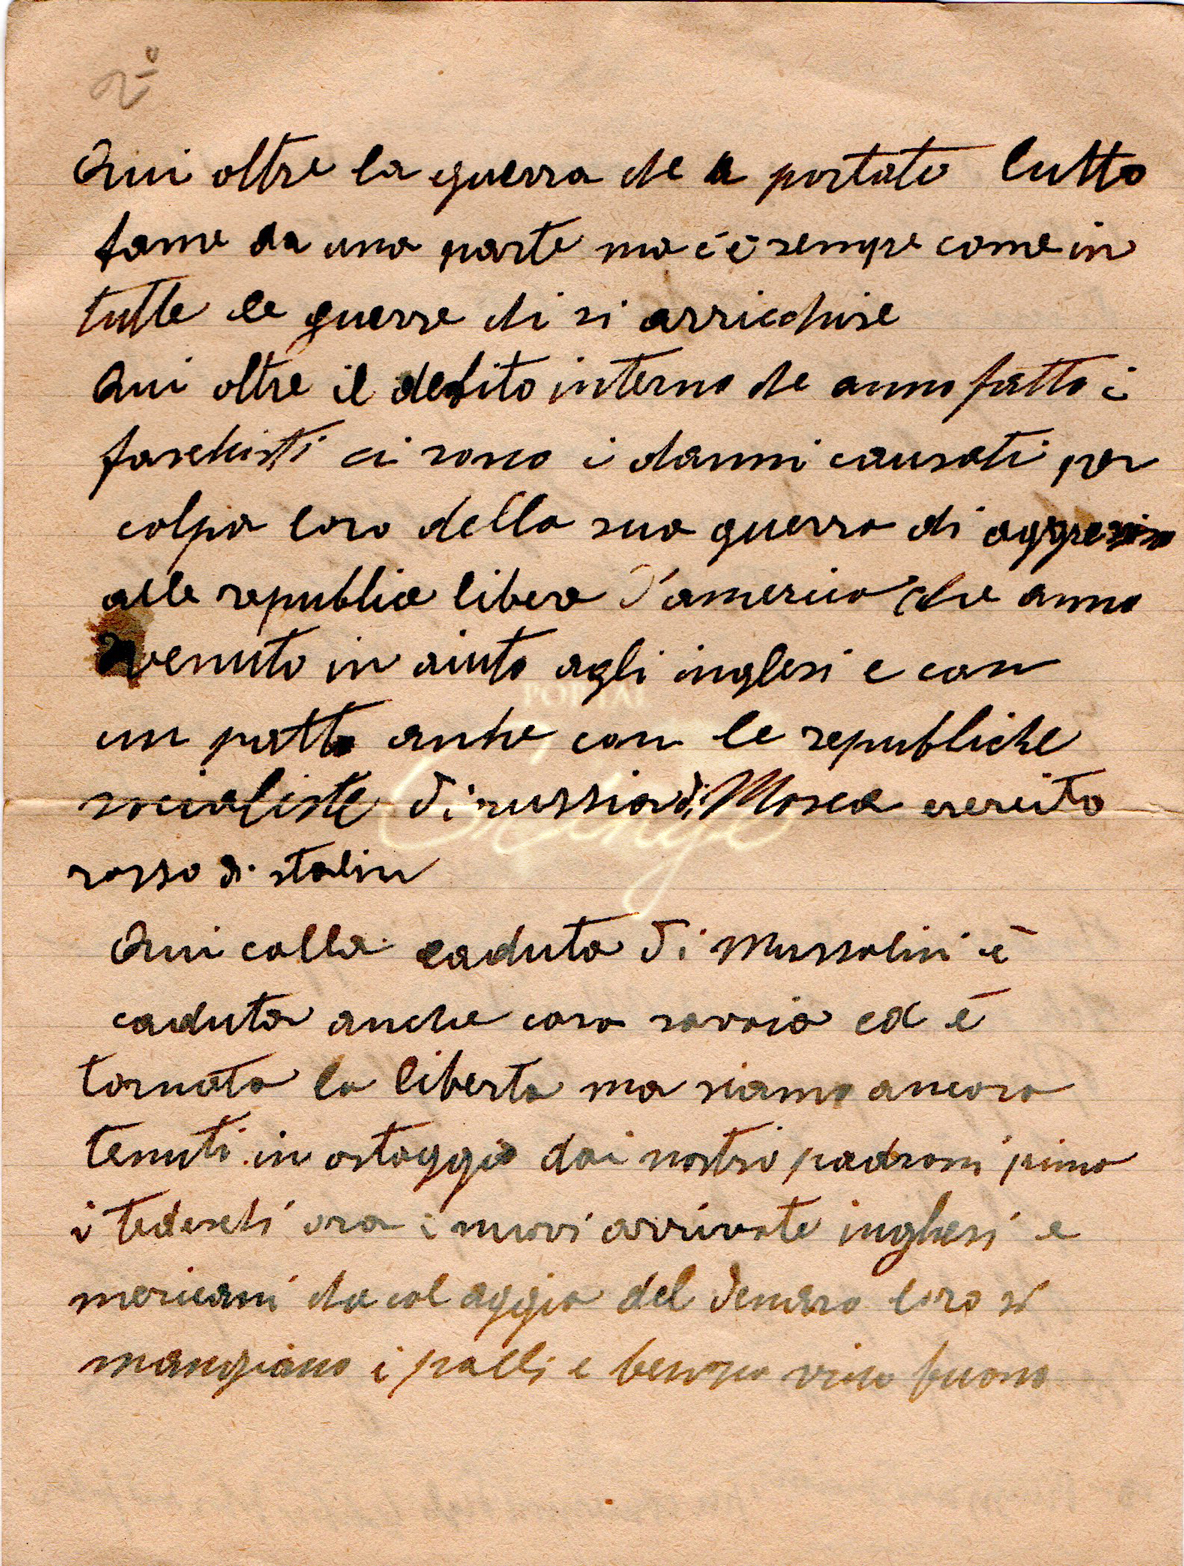 2°
Qui oltre la guerra che a portato lutto
fame da una parte ma c'è sempre come in
tutte le guerre chi si arricchise
Qui oltre il debito interno che anno fatto i
faschisti ci sono i danni causati per
colpa loro della sua guerra di
alle republice libere d'america che anno
venuto in aiuto agli inglesi e con
un patto anche con le republiche
socialiste di russia di Mosca esercito
rosso di stalin
Qui colla caduta di Mussolini è
caduta anche casa savoia ed è
tornata la liberta ma siamo ancora
tenuti in ostaggio dai nostri padroni primo
i tedeschi ora i nuovi arrivate inghesi e
mericani da col aggio del denaro loro si
mangiano i polli e bevono vino buono
PORTAL